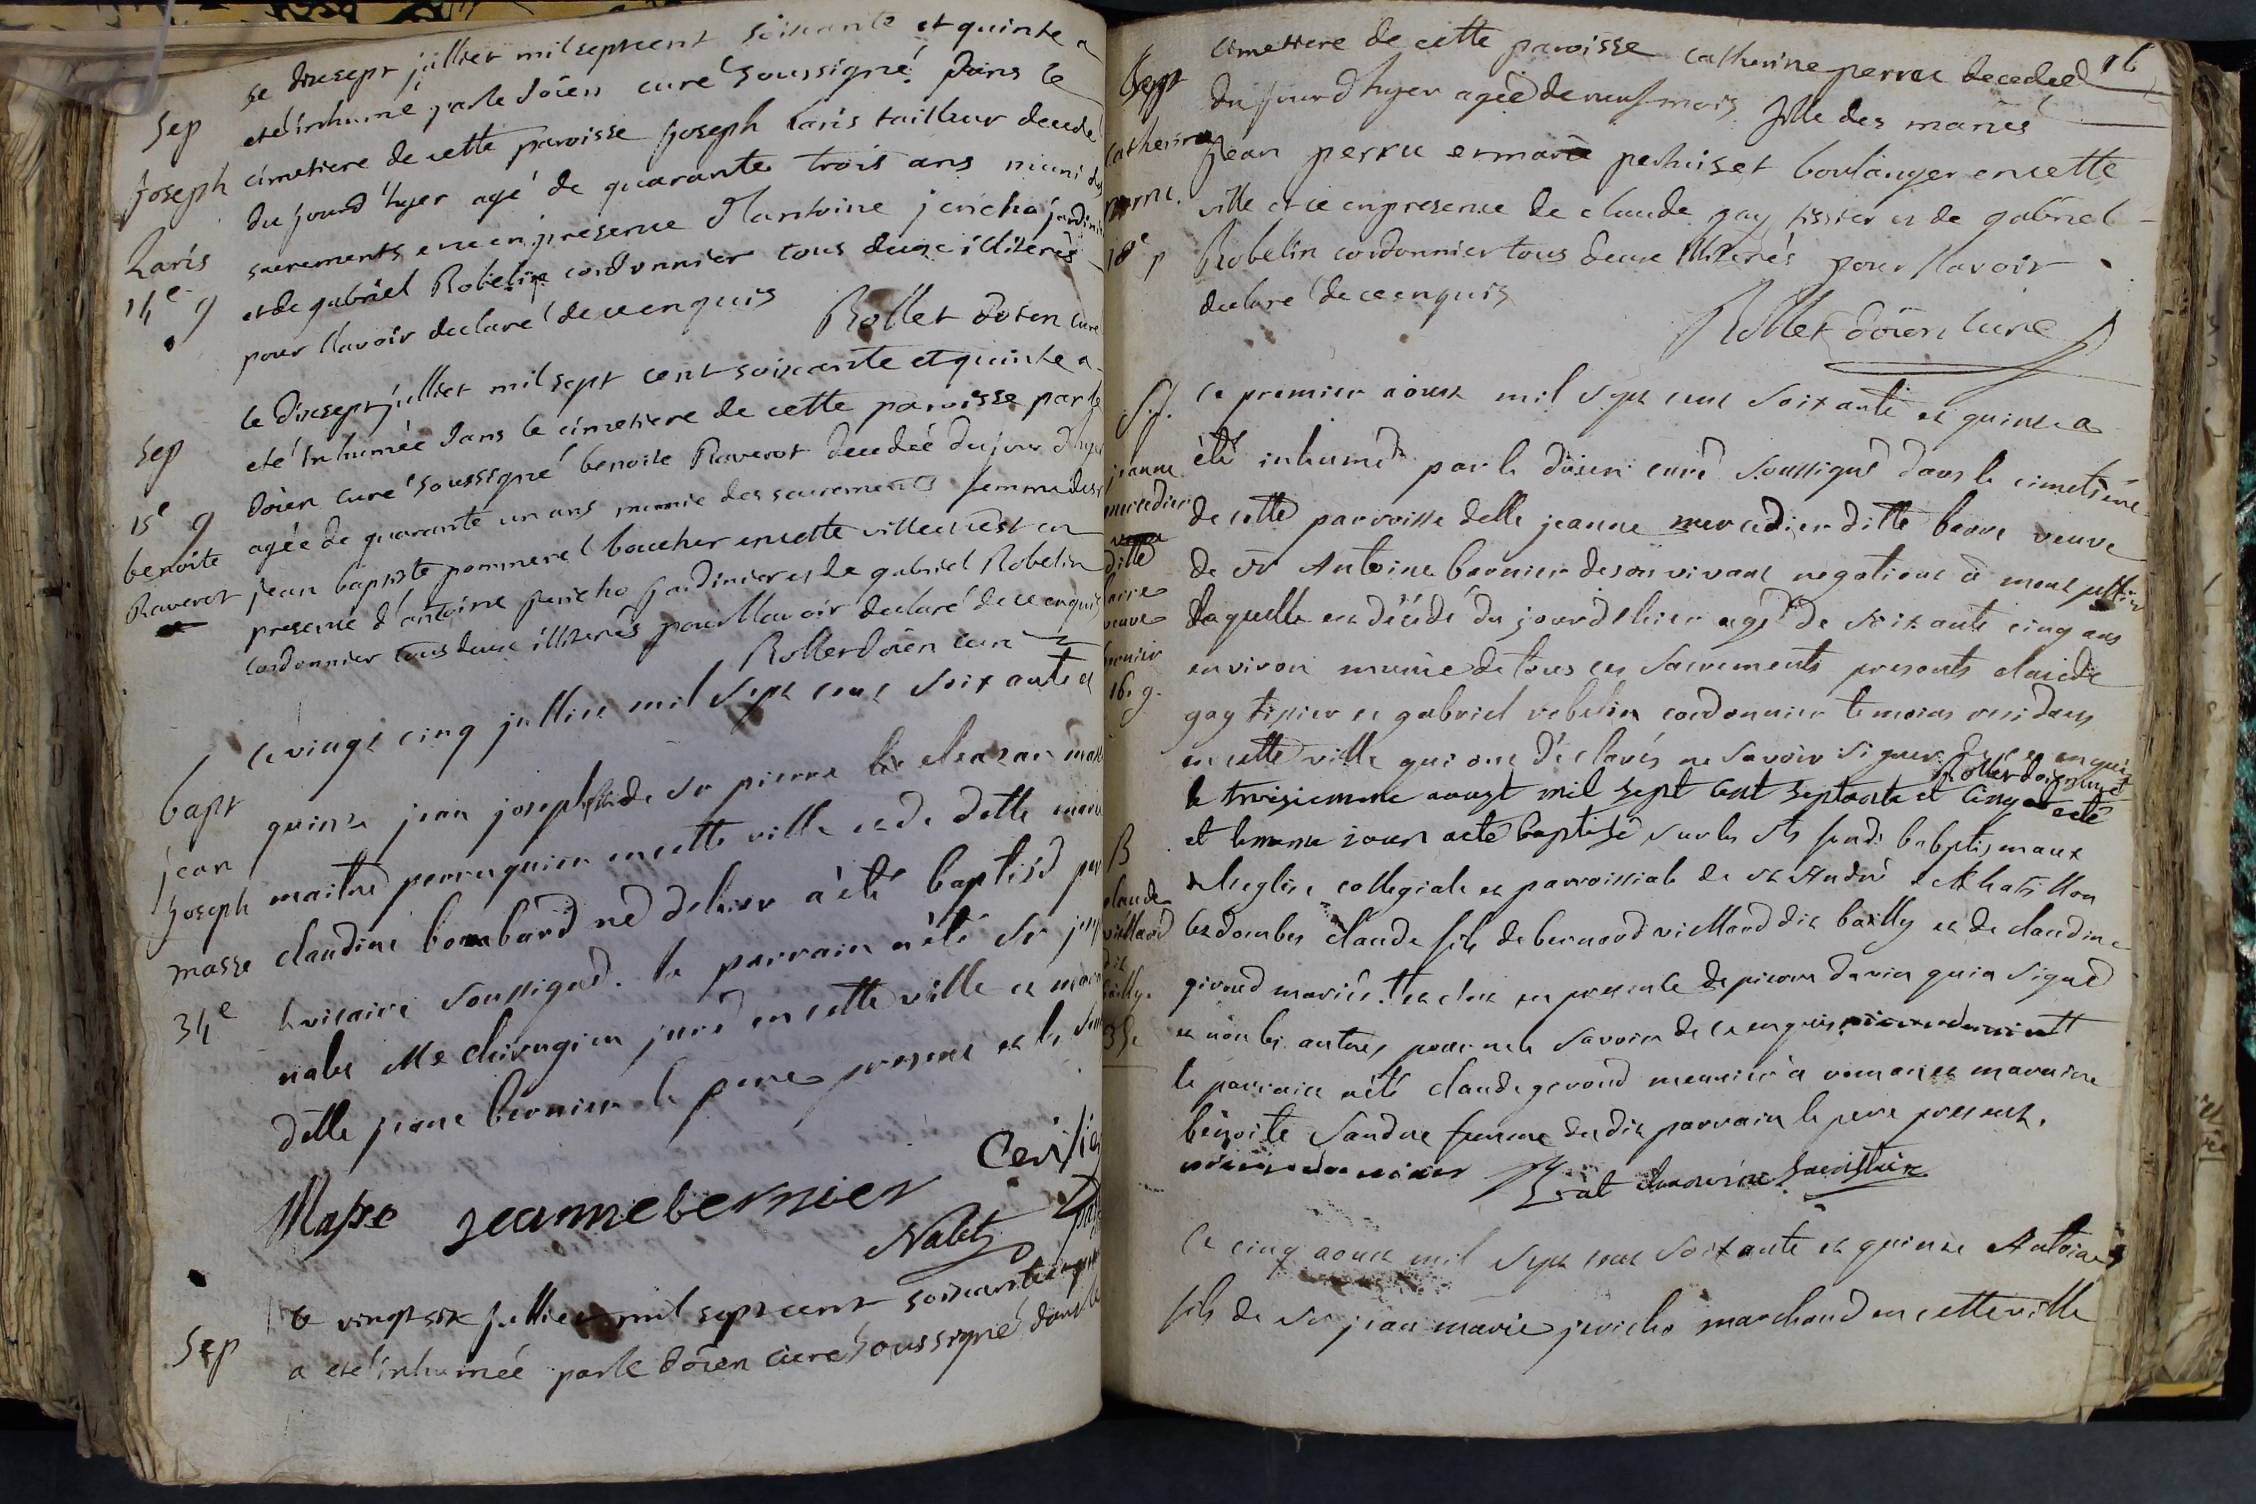 Sep
Joseph
Laris
14e g
Le dixsept julliet mil septcent soixante et quinze a
eté inhumé par le doïen curé soussigné dans le
cimetiere de cette paroisse Joseph Laris tailleur decedé
du jourd'hyer agé de quarante trois ans muni des
sacrements et ce en presence d'antoine jericho jardinier
et de gabriel Robelin cordonnier tous deux illiterés
pour l'avoir declaré de ce enquis
Rollet doïen curé
Sep
15e g
benoite
Raverot
le dixsept jullier mil sept cent soixante et quinze a
eté inhumée dans le cimetiere de cette paroisse par le
doïen curé soussigné benoite Raverot decedée du jour d'hyer
agée de quarante un ans munie des sacrements femme des
jean baptiste pommerel boucher en cette ville
presence d'antoine jericho jardinier et de gabriel Robelin
cordonnier tous deux illiterés pour l'avoir declaré de ce enquis
Rollet doïen curé
bapt
jean
Joseph
masse
34e
Le vingt cinq jullier mil sept cent soixante et
quinze jean joseph fils de sr pierre masse
maitre perruquier en cette ville et de delle marie
claudine bombard né d'hier a été baptisé par
le vicaire soussigné. le parrain a été sr
nalet Me chirugien juré en cette ville et
delle jeanne bernier le pere present
Masse jeanne bernier
Nalet
Sep
le vingt six jullier mil sept cent soixante et quinze
a eté inhumée par le doïen curé soussigné dans le
16
Sept
Catherine
perru.
18e p
cimetiere de cette paroisse catherine perru decedeé
du jourd'hyer ageé de neuf mois fille des mariés
jean perru et marie pethiset boulanger en cette
ville et ce en presence de claude gay tissier et de gabriel
Robelin cordonnier tous deux illiterés pour l'avoir
declaré de ce enquis
Rollet doïen curé
Sep.
jeanne
mercedier
ditte
veuve
bernier
16e g.
Le premier aoust mil sept cent soixante et quinze a
été inhumée par le doïen curé soussigné dans le cimetière
de cette parroisse delle jeanne mercedier ditte veuve
de sr Antoine bernier de son vivant negotiant à
laquelle est décédé du jourd'hier agé de soixante cinq ans
environ munie de tous ses sacrements presents claude
gay tissier et gabriel robelin cordonnier temoins residans
en cette ville qui ont déclarés ne savoir signer de ce enquis
Rollet doïen curé
B
claude
viellard
dit
bailly.
35e
le troisiemme aoust mil sept cent septante et cinq est né
et le meme jour a eté baptisé sur les sts fonds babptismaux
de l'eglise collegiale et parroissiale de st André de Chatillon
les dombes claude fils de bernard viellard dit bailly et de claudine
giroud mariés. et ce en presence de pierre qui a signé
et non les autres pour ne le savoir de ce enquis
le parrain a été claude giroud meunier à et marraine
bénoite Sandre femme du dit parrain le pere present.
Le cinq aoust mil sept cent soixante et quinze Antoine
fils de sr jean marie jericho marchand en cette ville